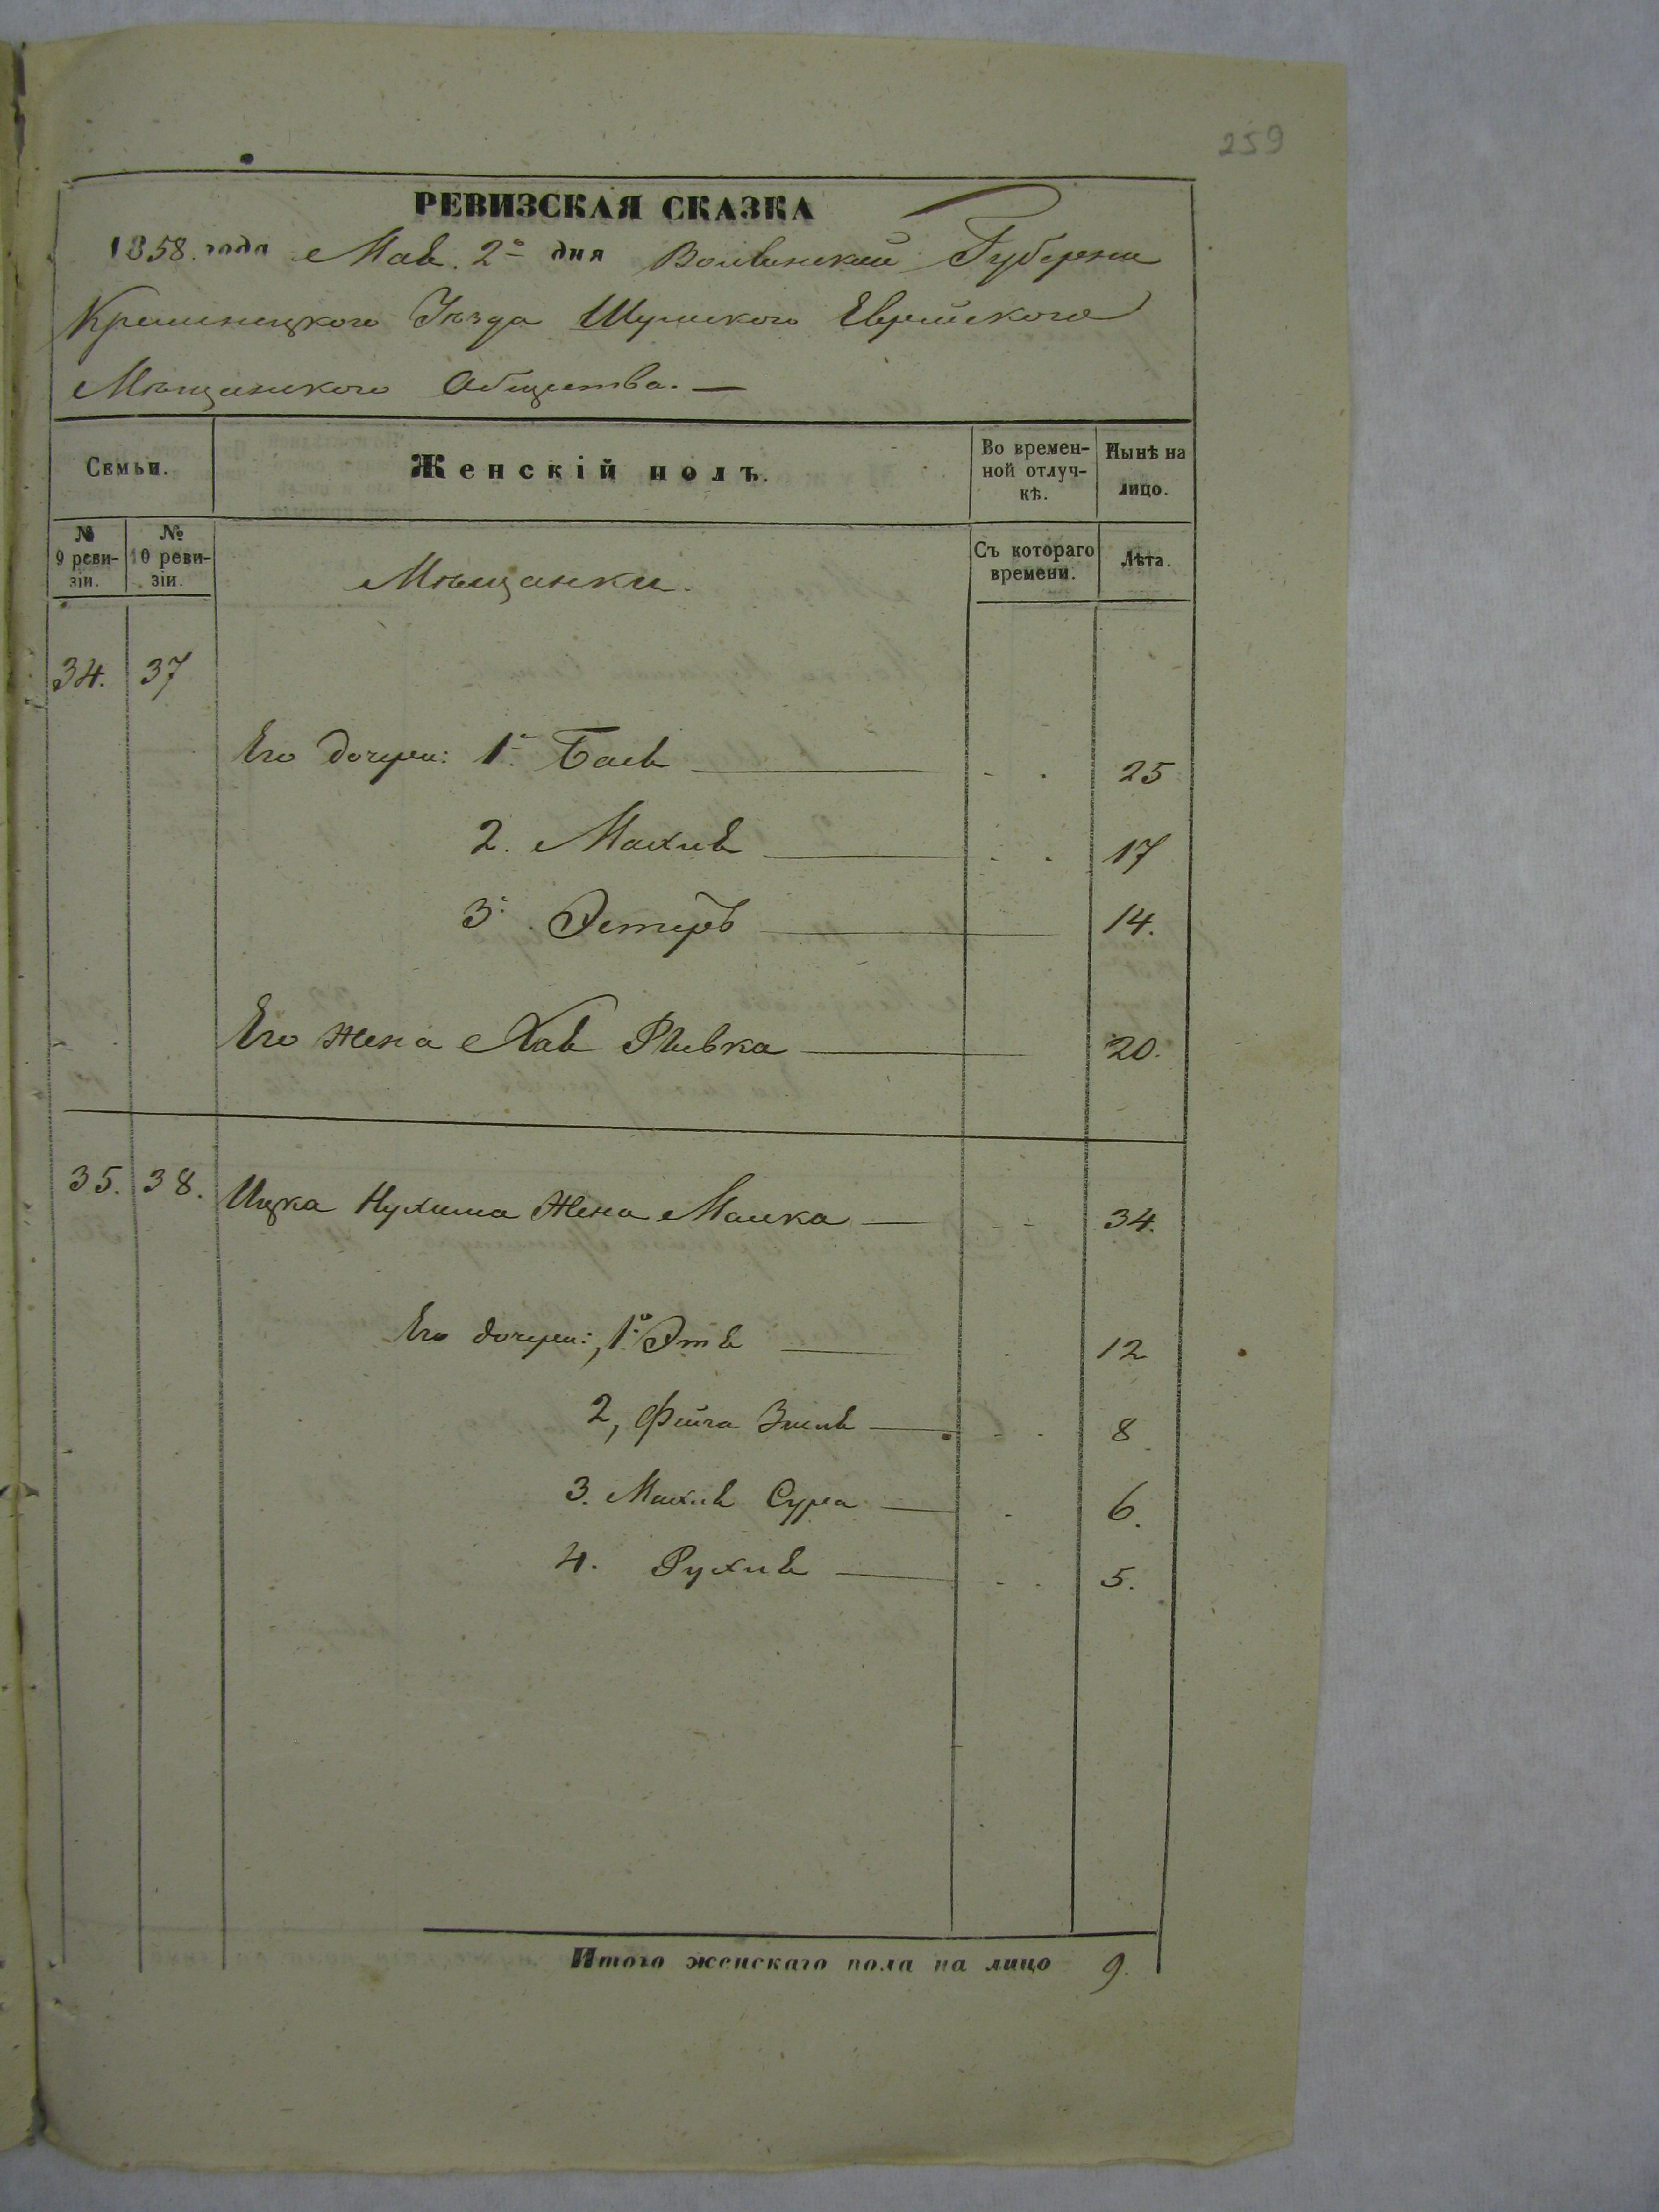 259
РЕВИЗСКАЯ СКАЗКА
1858. года Мая. 2го дня Волынской Губернии
Кременецкого Уѣзда Шумского Еврейского
Мѣщанского Общества. —
Семьи.
Женскій полъ.
Во времен-
ной отлуч-
кѣ.
Нынѣ на
лицо.
№
9 реви-
зіи.
№
10 реви-
зіи.
Мѣщанки.
Съ котораго
времени.
Лѣта.
34. 37
Его дочери: 1. Бася 25
2. Махля 17
3. Эстеръ 14.
Его жена Хая Рывка 20.
35. 38. Ицка Нухима Жена Малка 34.
Его дочери:, 1. Этя 12
2, Фейга 8
3. Махля Сура 6.
4. Рухля 5.
Итого женскаго пола на лицо 9.